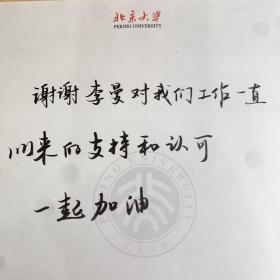 北京大学
PEKING UNIVERSITY
谢谢李曼对我们工作一直
以来的支持和认可
一起加油
1898